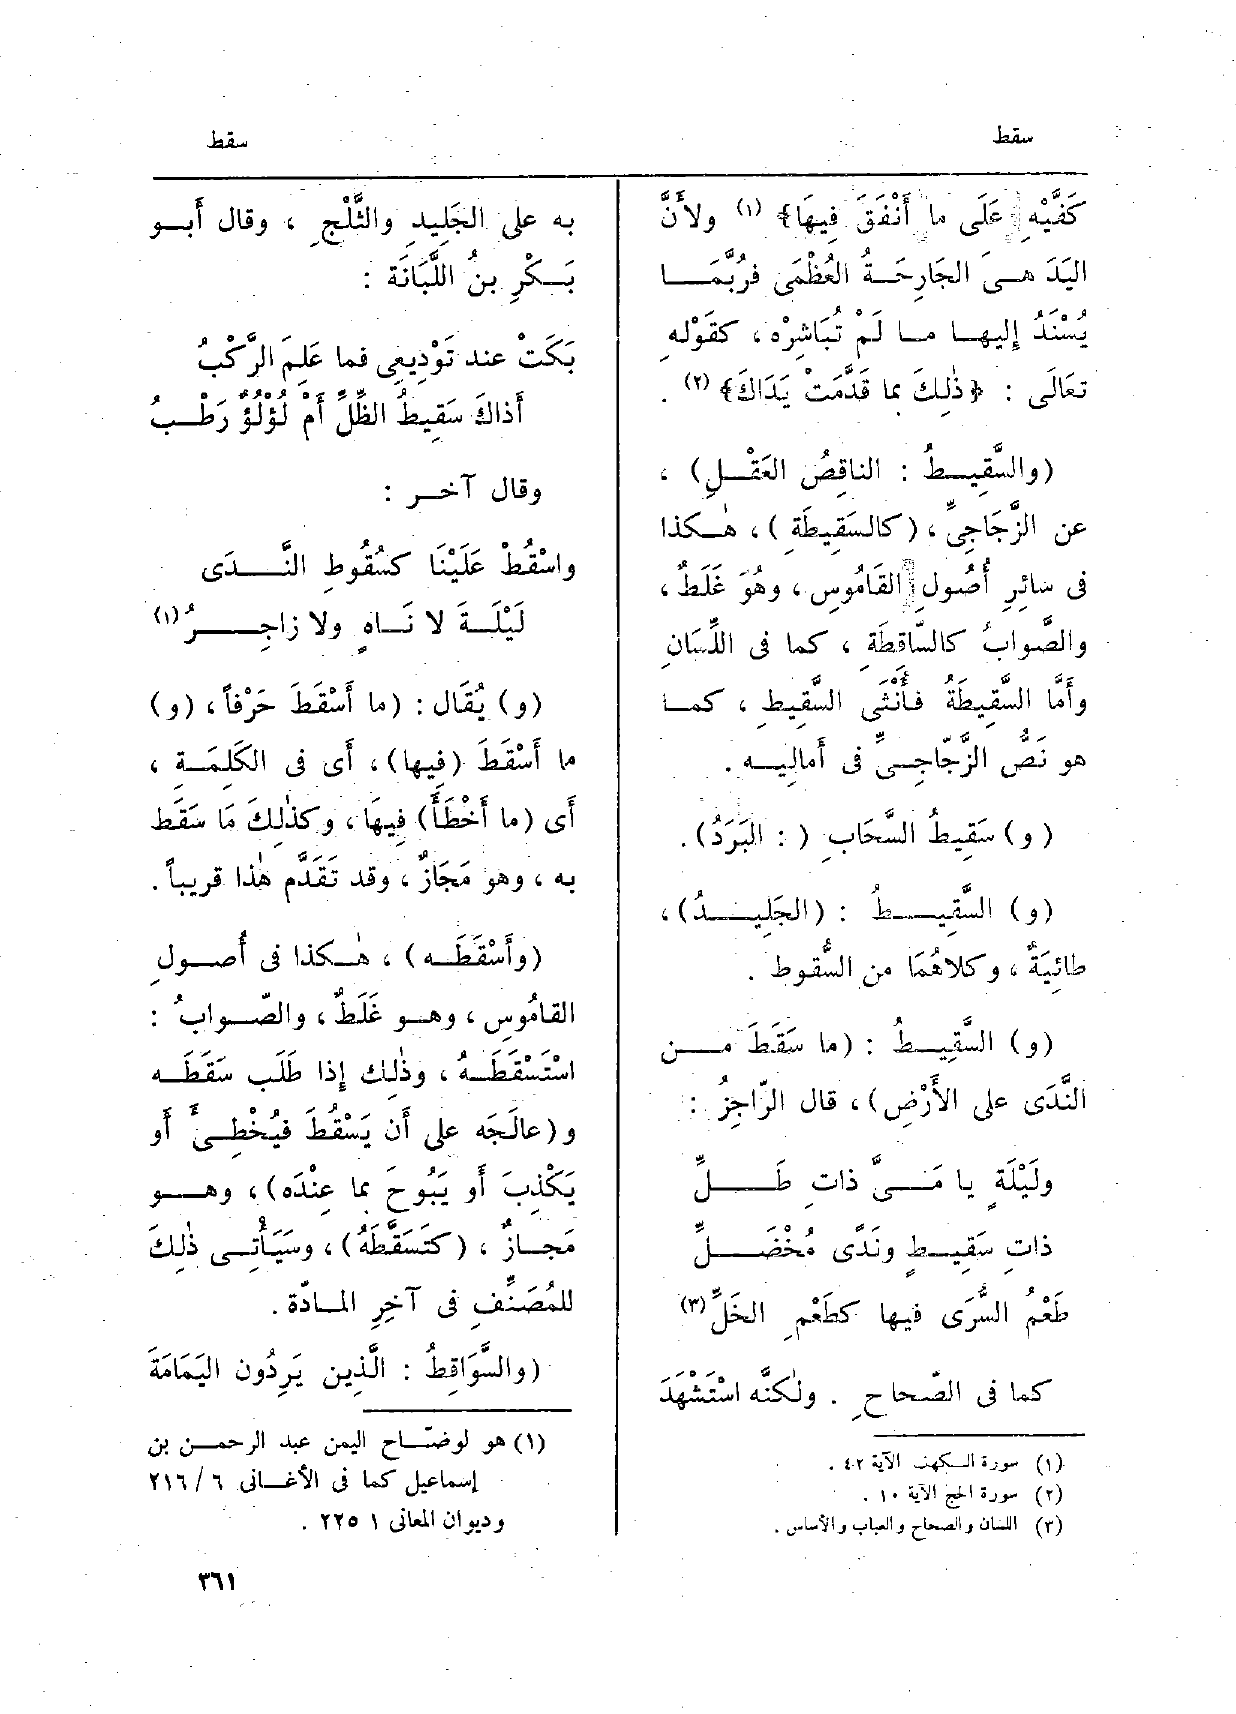 سقط
سقط
كَفَّيْهِ عَلَى ما أَنْفَقَ فِيهَا﴾ (١) ولأَنَّ
اليَدَ هـى الجَارِحَـةُ العُظْمَى فرُبَّمَـا
يُسْنَدُ إليهـا مـا لَمْ تُبَاشِرْه ، كقَوْلِه
تعَالَى : ﴿ذٰلِكَ بما قَدَّمَتْ يَدَاكَ﴾ (٢) .
(والسَّقِيـطُ : الناقِصُ العَقْـلِ) ،
عن الزَّجَاجِىِّ ، (كالسَقِيطَةِ) ، هٰـكذا
فى سائِرِ أُصُولِ القَامُوسِ ، وهُوَ غَلَطٌ ،
والصَّوابُ كالسّاقِطَةِ ، كما فى اللِّسَانِ
وأَمَّا السَّقِيطَةُ فـأُنْثَى السَّقِيطِ ، كمـا
هو نَصُّ الزَّجّاجِـىِّ فى أَمالِيـه .
(و) سَقِيطُ السَّحَابِ ( : البَرَدُ) .
(و) السَّقِيـطُ : (الجَلِيـدُ) ،
طائِيَّةٌ ، وكلاهُمَا من السُّقوط .
(و) السَّقِيـطُ : (ما سَقَطَ مـن
النَّدَى على الأَرْضِ) ، قال الرّاجِزُ :
ولَيْلَةٍ يا مَـىَّ ذاتِ طَـلِّ
ذاتِ سَقِيـطٍ ونَدًى مُخْضَـلِّ
طَعْمُ السُّرَى فيها كطَعْمِ الخَلِّ (٣)
كما فى الصّحاحِ . ولٰكنَّه اسْتَشْهَدَ
(١) سورة الـكهف الآية ٤٢ .
(٢) سورة الحج الآية ١٠ .
(٣) اللسان والصحاح والعباب والأساس .
به على الجَلِيدِ والثَّلْجِ ، وقال أَبـو
بَـكْرِ بنُ اللَّبَّانَة :
بَكَتْ عند تَوْدِيعِى فما عَلِمَ الرَّكْبُ
أَذاكَ سَقِيطُ الظِّلِّ أَمْ لُؤْلُؤٌ رَطْـبُ
وقال آخـر :
واسْقُطْ عَلَيْنَا كسُقُوطِ النَّـدَى
لَيْلَـةَ لا نَـاهٍ ولا زاجِـرُ (١)
(و) يُقَال : (ما أَسْقَطَ حَرْفاً ، (و)
ما أَسْقَطَ (فِيها) ، أَى فى الكَلِمَـةِ ،
أَى (ما أَخْطَأَ) فِيهَا ، وكذٰلِكَ مَا سَقَط
به ، وهو مَجَازٌ ، وقد تَقَدَّم هٰذا قريباً .
(وأَسْقَطَـه) ، هٰـكذا فى أُصـولِ
القامُوسِ ، وهـو غَلَطٌ ، والصّـوابُ :
اسْتَسْقَطَـهُ ، وذٰلك إذا طَلَب سَقَطَـه
و(عالَجَه على أَن يَسْقُطَ فيُخْطِىَٔ أَو
يَكْذِبَ أَو يَبُوحَ بما عِنْدَه) ، وهـو
مَجـازٌ ، (كتَسَقَّطَهُ) ، وسَيَأْتِـى ذٰلِكَ
للمُصَنِّفِ فى آخِرِ المـادّة .
(والسَّوَاقِطُ : الَّذِين يَرِدُون اليَمَامَةَ
(١) هو لوضّـاح اليمن عبد الرحمـن بن
إسماعيل كما فى الأغـانى ٦ / ٢١٦
وديوان المعانى ١ ٢٢٥ .
٣٦١